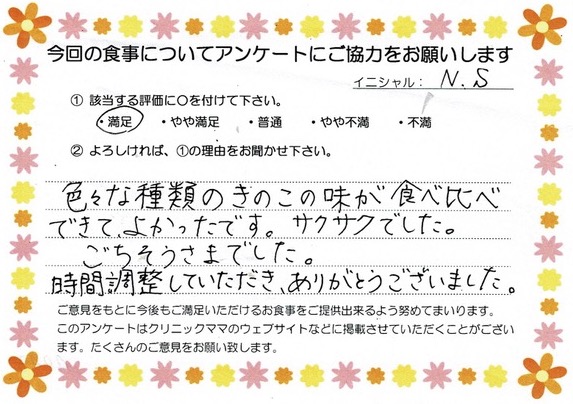 今回の食事についてアンケートにご協力をお願いします
イニシャル： N.S
① 該当する評価に○を付けて下さい。
・満足 ・やや満足 ・普通 ・やや不満 ・不満
② よろしければ、①の理由をお聞かせ下さい。
色々な種類のきのこの味が食べ比べ
できて、よかったです。サクサクでした。
ごちそうさまでした。
時間調整していただき、ありがとうございました。
ご意見をもとに今後もご満足いただけるお食事をご提供出来るよう努めてまいります。
このアンケートはクリニックママのウェブサイトなどに掲載させていただくことがござい
ます。たくさんのご意見をお願い致します。